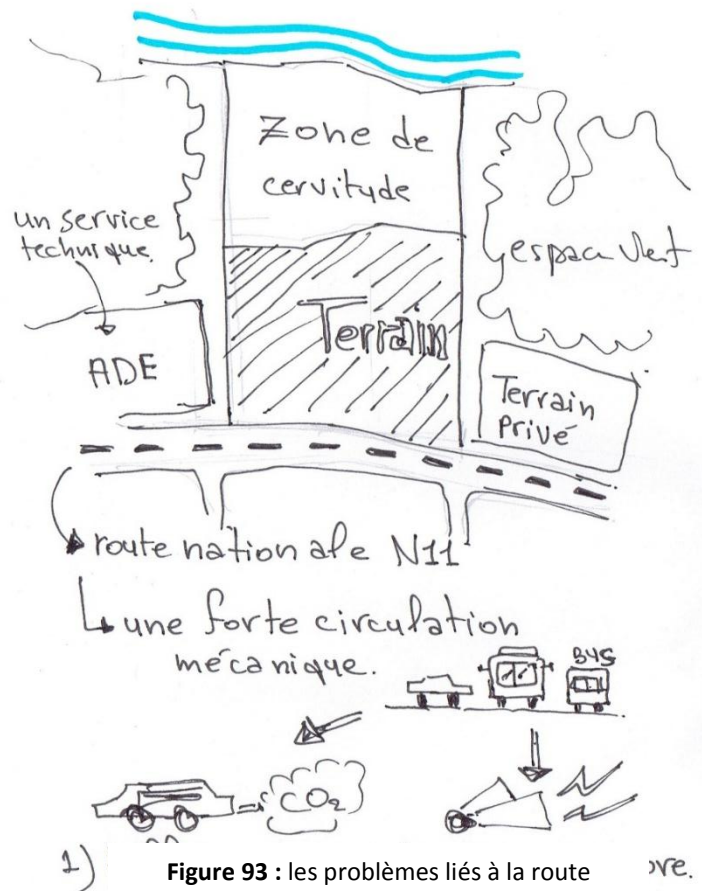 Zone de
cervitude
un service
technique.
espace vert
Terrain
ADE
Terrain
Privé
route nationale N11
une forte circulation
mécanique.
BUS
CO2
1)
Figure 93 : les problèmes liés à la route